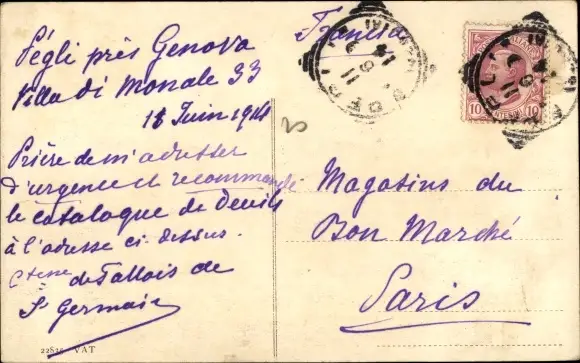 Pégli près Genova
Villa di Monale 33
15 Juin 1914
Prière de m'adresser
d'urgence et recommandé
le catalogue de Deuils
à l'adresse ci-dessus.
Ctesse de Fallois de
St Germain
Francia
Magasins du
Bon Marché
Paris
10 10
22829 VAT